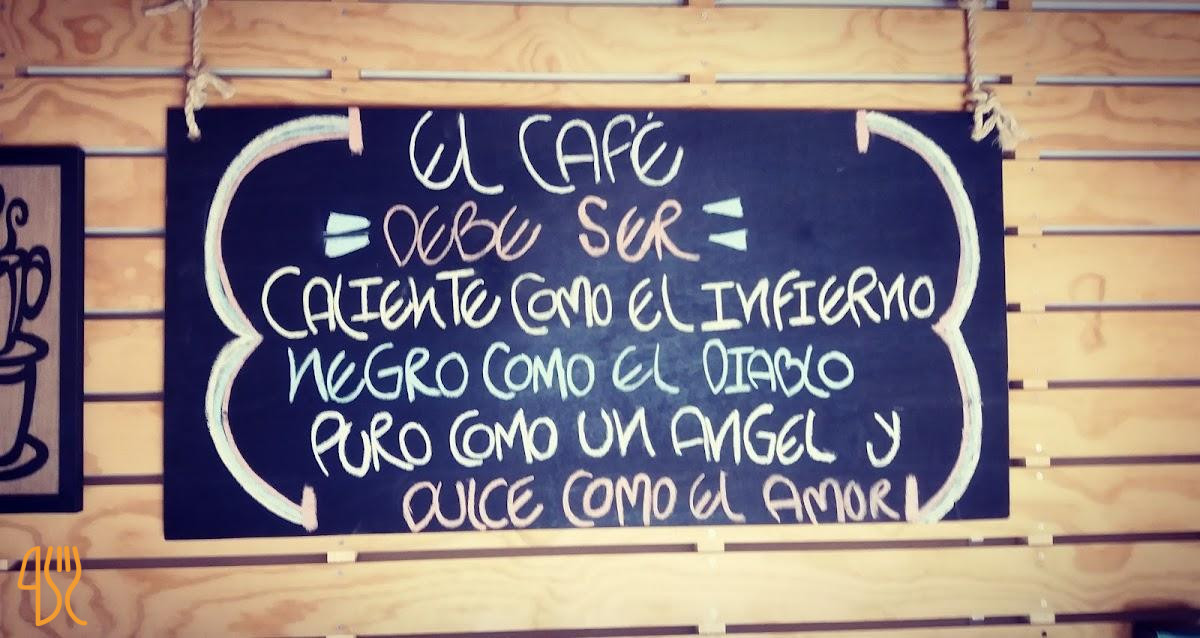 El CAFÉ
DEBE SER
CALIENTE COMO EL INFIERNO
NEGRO COMO EL DIABLO
PURO COMO UN ANGEL Y
DULCE COMO El AMOR